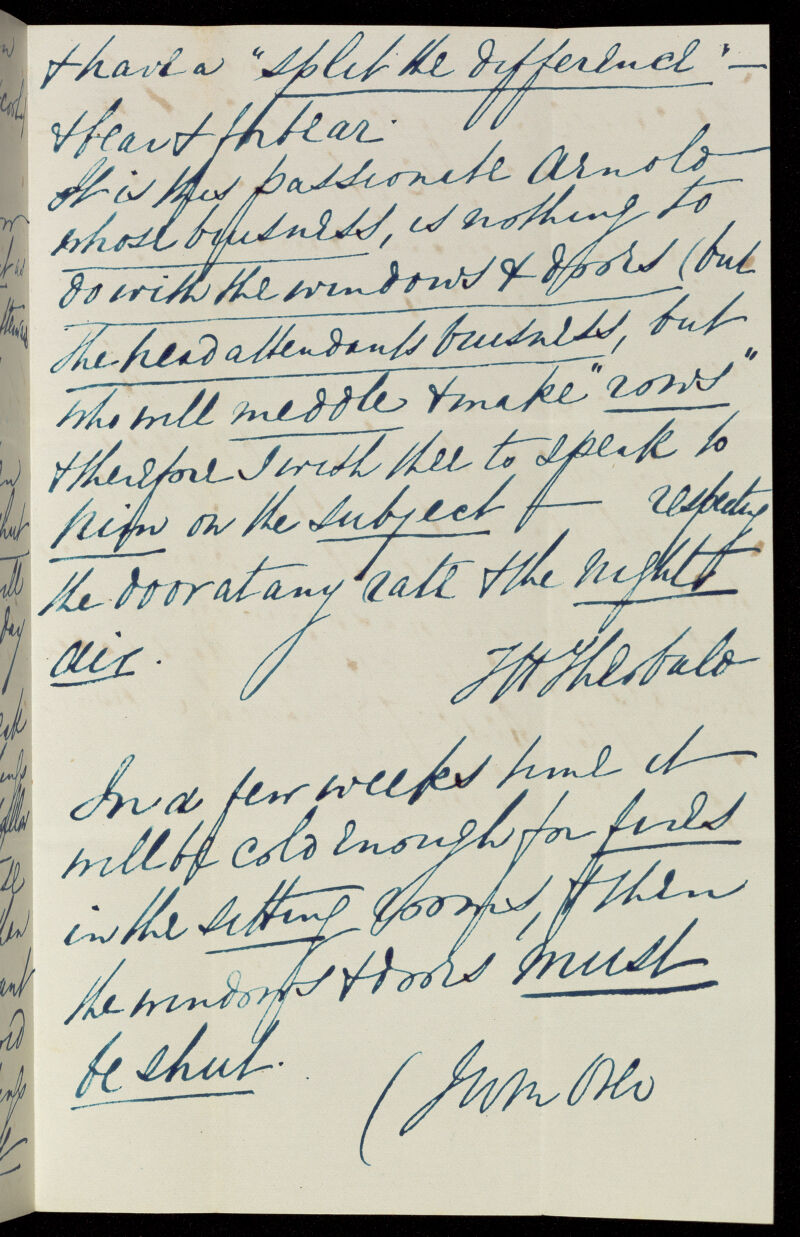 & have a "split the difference" —
& bear & forbear.
It is this passionate Arnold
whose buisness, is nothing to
do with the windows & doors (but
the head attendants buisness, but
who will meddle & make "rows"
& therefore I wish thee to speak to
him on the subject — respecting
the door at any rate & the night
air.
Theobald
In a few weeks time it
will be cold enough for fires
in the sitting rooms, & then
the windows & doors must
be shut.
(